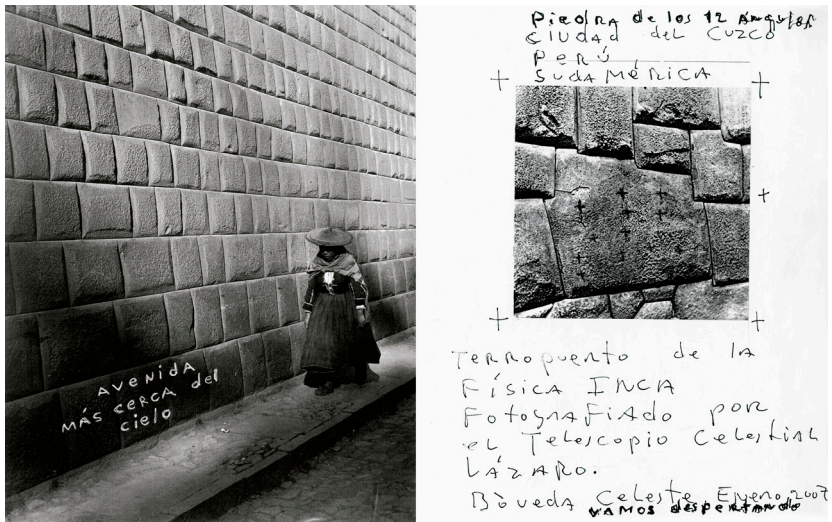 AVENIDA
MÁS CERCA del
cielo
Piedra de los 12 Angulos
CIUDAD del CUZCO
PERÚ
SUDAMÉRICA
TERROPUERTO de la
Física INCA
Fotografiado por
el Telescopio Celestial
LÁZARO.
Bóveda Celeste Enero 2007
VAMOS despertando